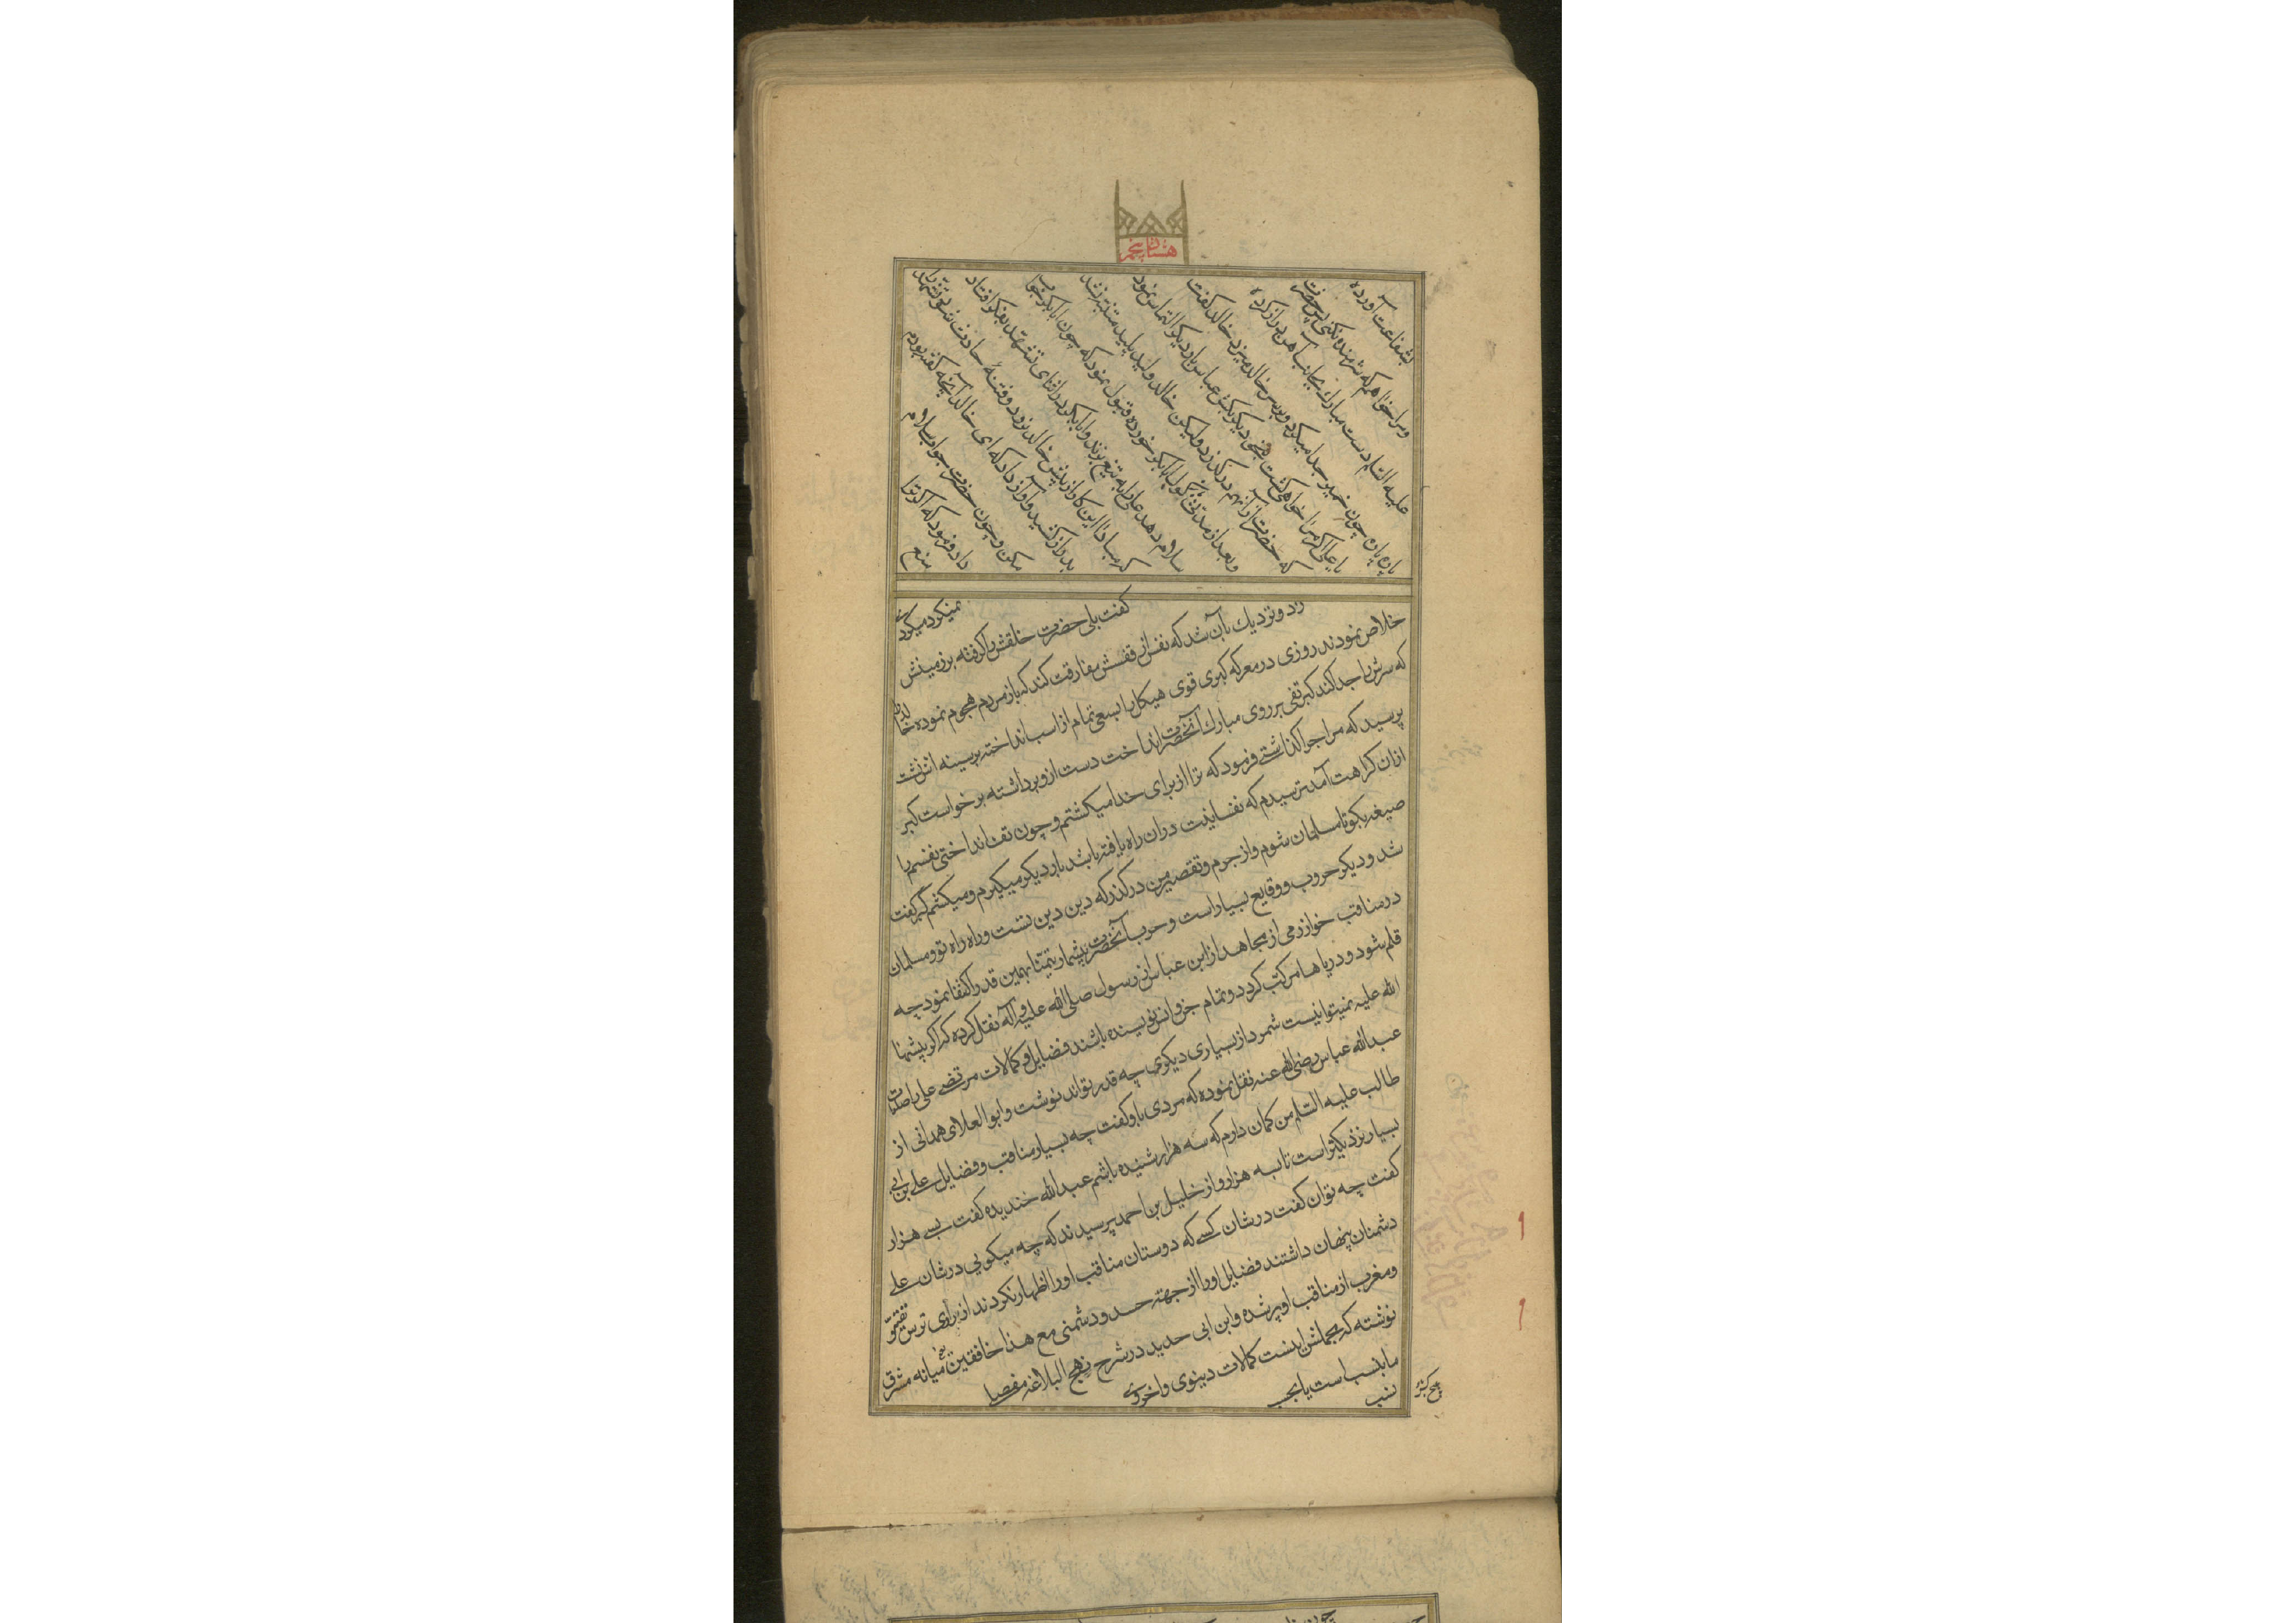 هشتاد و پنجم
بشفاعت آورده
و سرا خواهم که شرمنده نکنی پس حضرت
علیه السلام دست مبارک بجانب آهن دراز کرده
پاره پاره چون خمیر جدا میکرد و بر سر خالد میزد خالد گفت
یا علی اگر مرا خواهی کشت بنحو دیگر بکش عباس بار دیگر التماس نمود
که حضرت از آنهم درگذرد ولیکن خالد ولید پلید متنبه نشد
و بعد از مدتی گول ابابکر خورده قبول نمود که چون ابابکر جواب
سلام دهد علی را به تیغ بزند و ابابکر در اثنای تشهد بفکر افتاد
که مبادا این کار از پیش خالد نرود و فتنهٔ حادث شود تشهد را
بدراز کشید و آواز داد که ای خالد آنچه گفته بودم
مکن و چون حضرت جواب سلام
داد فرمود که اگر ترا
منع
نمیکرد میکردی
گفت بلی حضرت خلقش را گرفته بر زمینش
زد و نزدیک بآن شد که نفس از قفسش مفارقت کند که باز مردم هجوم نموده خالد را
خلاص نمودند روزی در معرکه گبری قوی هیکل را بسعی تمام از اسب انداخته بر سینه اش نشت
که سرش را جدا کند گبر تفی بر روی مبارک آنحضرت انداخت دست ازو برداشته برخواست گبر
پرسید که مرا چرا گذاشتی فرمود که ترا از برای خدا میکشتم و چون تف انداختی نفسم را
ازان کراهت آمد ترسیدم که نفسانیت دران راه یافته باشد بار دیگر میگیرم و میکشم گبر گفت
صیغه بگو تا مسلمان شوم و از جرم و تقصیر من درگذر که دین دین تست و راه راه تو و مسلمان
شد و دیگر حروب و وقایع بسیار است و حرب آنحضرت بیشمار تیمنا بهمین قدر اکتفا نمود چه
در مناقب خوارزمی از مجاهد از ابن عباس از رسول صلی الله علیه و آله نقل کرده که اگر بیشها
قلم شود و دریاها مرکب گردد و تمام جن و انس نویسنده باشند فضایل و کمالات مرتضی علی را صلوات
الله علیه نمیتوانیست شمرد از بسیاری دیگری چه قدر تواند نوشت و ابو العلای همدانی از
عبدالله عباس رضی الله عنه نقل نموده که مردی باو گفت چه بسیار مناقب و فضایل علی بن ابی
طالب علیه السلام من گمان دارم که سه هزار شنیده باشم عبدالله خندیده گفت بسی هزار
بسیار نزدیکتر است تا بسه هزار و از خلیل بن احمد پرسیدند که چه میگویی در شان علی
گفت چه توان گفت در شان کسی که دوستان مناقب او را اظهار نکردند از برای ترس تقیه و
دشمنان پنهان داشتند فضایل او را از جهة حسد و دشمنی مع هذا خافقین یعنی میانه مشرق
و مغرب از مناقب او پر شده و ابن ابی حدید در شرح نهج البلاغه مفصلا
نوشته که مجملش اینست کمالات دینوی و اخروی
ما بنسب است یا بحسب
نسب